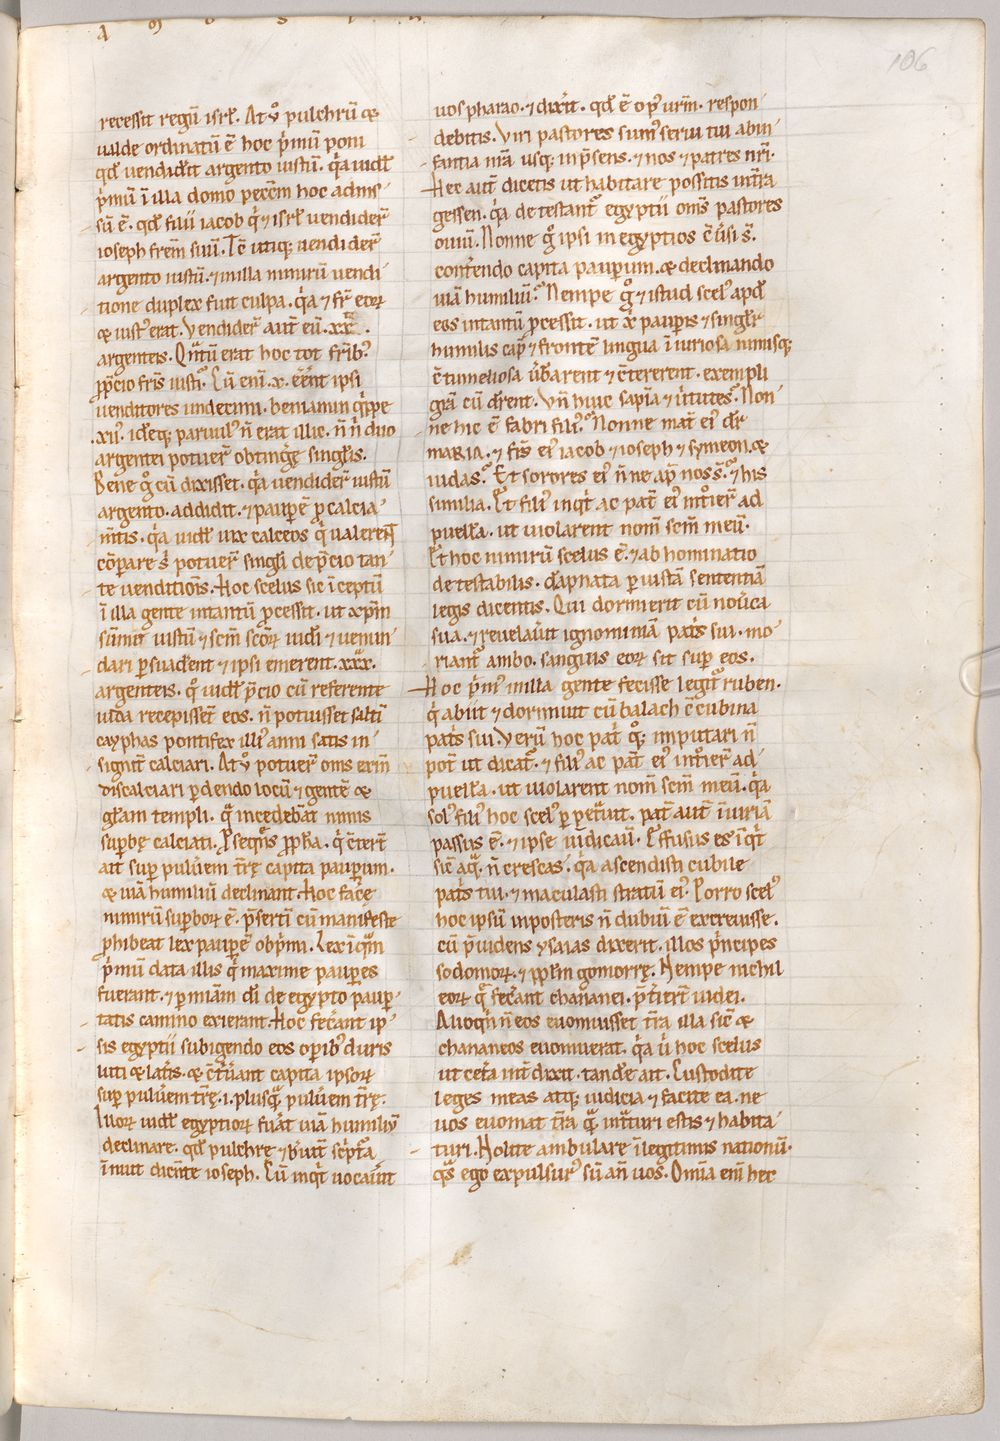 106
recessit regnū isrl̄. At v̊ pulchrū ⁊
valde ordinatū ē hoc p̓mū poni
qd̄ vendid̓it argento iustū. q̓a uidl̄
p̓mū ī illa domo peccm̄ hoc admis
sū ē. qd̄ filii iacob q̓ ⁊ isrl̄ vendider̄
ioseph frēm suū. Tē utiq; uendider̄
argento iustū. ⁊ in illa nimirū uendi
tione duplex fuit culpa. q̓a ⁊ fr̄ eoꝝ
⁊ iust᾽ erat. Vendider̄ aut̄ eū .xx.
argenteis. Qn̄tū erat hoc tot frīb᾽
p̄cio frīs iusti. Cū eni᾽ .x. eēnt ipsi
venditores undecim. beniamin q̓ppe
.xii᾽. idēq; paruul᾽ n̄ erat illic. n̄ n̓ duo
argentei potuer̄ obtingę singl̓is.
Bene g̊ cū dixisset. q̓a vendider̄ iustū
argento. addidit. ⁊ paupē p̱ calcia
m̄tis. q̓a uidl̄ uix calceos q̓ ualerent
cōparare s᾽ potuer̄ singl̓i de p̄cio tan
te venditiōis. Hoc scelus sic īceptū
ī illa gente intantū p̱cessit. ut xp̄m
sūme iustū ⁊ scm̄ scoꝝ uidl̄ ⁊ uenun
dari p̱suad̓ent ⁊ ipsi emerent .xxx.
argenteis. q̊ uidl̄ p̄cio cū referente
iuda recepissēt eos. n̄ potuisset saltī
cayphas pontifex illi᾽ anni satis in
signit̄ calciari. At v̊ potuer̄ om̄s exīn
discalciari p̱dendo locū ⁊ gentē ⁊
gl̓am templi. q̄ incedebāt nimis
supbę calciati. P̱seqm̄s pp̄ha. q̓ c̄tert̄
ait sup puluem t̄rę capita paupum.
⁊ uiā humiliū declinant. Hoc facę
nimirū supboꝝ ē. p̄serti᾽ cū manifeste
p̱hibeat lex paupē obp̓mi. Lex ī qm̄
p̓mū data illis q̓ maxime paupes
fuerant. ⁊ p̱ miā̄m di̓ de egypto paup
tatis camino exierant. Hoc fec̓ant ip
sis egyptii subigendo eos opib᾽ duris
luti ⁊ lat̓is. ⁊ c̄t̓uant capita ipsoꝝ
sup puluem t̄rę. i. plusq̄ puluem t̄rę.
Illoꝝ uidl̄ egyptioꝝ fuāt uiā humiliū
declinare. qd̄ pulchrę ⁊ b̓uit̄ sc̓pt̓a
inuit dicēte ioseph. Cū inq̓t uocau̓it
uos pharao. ⁊ dix̓it. qd̄ ē op᾽ ur̄m. respon
debitis. Viri pastores sum᾽ serui tui ab in
fantia nr̄a usq; in p̄sens. ⁊ nos ⁊ patres nr̄i.
Hec aut̄ dicetis ut habitare possitis in t̄ra
gessen. q̓a detestant᾽ egyptii om̄s pastores
ouiū. Nonne g̊ ipsi in egyptios c̄u̓si s̄.
conterendo capita paupum. ⁊ declinando
uiā humiliū? Nempe q̊ ⁊ istud scel᾽ apd̄
eos intantū p̱cessit. ut x̄ paupis ⁊ singl̓r
humilis cap᾽ ⁊ frontē lingua īiuriosa nimisq;
c̄tumeliosa u̓barent ⁊ c̄tererent. exempli
grā cū dr̄ent. Vn̄ huic sapīa ⁊ u̓tutes? Non
ne hic ē fabri fili᾽? Nonne mat̄ ei᾽ dr̄
maria. ⁊ frs̄ ei᾽ iacob ⁊ ioseph ⁊ symeon. ⁊
iudas? Et sorores ei᾽ n̄ne ap̄ nos s̄? ⁊ his
similia. Et fili᾽ inq̓t ac pat̄ ei᾽ int̓ier̄ ad
puellā. ut uiolarent nom̄ scm̄ meū.
Et hoc nimirū scelus ē. ⁊ abhominatio
detestabilis. dāpnata p̱ iustā sententiā
legis dicentis. Qui dormierit cū nou̓ca
sua. ⁊ reuelau̓it ignominiā pat̓s sui. mo
riant᾽ ambo. sanguis eoꝝ sit sup eos.
Hoc p̓m᾽ in illa gente fecisse legit᾽ ruben.
q̓ abiit ⁊ dormiuit cū balach c̄cubina
pat̓s sui. Verū hoc pat̓ q̊; imputari n̄
pot̄ ut dicat᾽. ⁊ fili᾽ ac pat̄ ei᾽ int̓ier̄ ad
puellā. ut uiolarent nom̄ scm̄ meū. q̓a
sol᾽ fili᾽ hoc scel᾽ p̱pet̓uit. pat̄ aut̄ īiuriā
passus ē. ⁊ ipse iudicau̓. Effusus es īq̓t
sic̄ aq̄. n̄ crescas. q̓a ascendisti cubile
pat̓s tui. ⁊ maculasti stratū ei᾽. Porro scel᾽
hoc ipsū in posteris n̄ dubiū ē excreuisse.
cū p̄uidens ysaias dixerit. illos p̓ncipes
sodomoꝝ. ⁊ pp̄lm gomorrę. Nempe nichil
eoꝝ q̄ fec̓ant chananei. p̄t̓ier̄t iudei.
Alioqn̄ n̄ eos euomuisset t̄ra illa sic̄ ⁊
chananeos euomuerat. q̓a u̓ hoc scelus
ut cet̓a int̄dixit. tand̄e ait. Custodite
leges meas atq; iudicia ⁊ facite ea. ne
uos euomat t̄ra q̄ int̓turi estis ⁊ habita
turi. Nolite ambulare ī legitimis nationū.
q̓s ego expulsur᾽ sū an̄ uos. Omīa eni᾽ hec